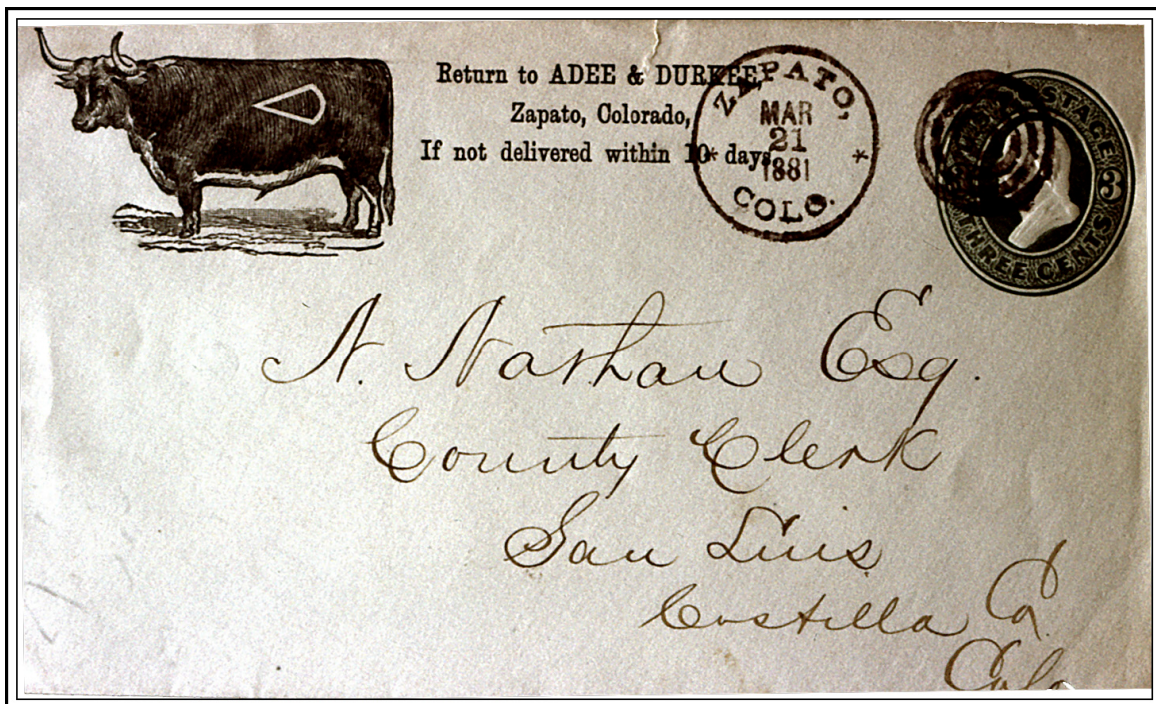 Return to ADEE & DURKEE,
Zapato, Colorado,
If not delivered within 10 days
ZAPATO,
MAR
21
1881
COLO.
POSTAGE 3
THREE CENTS
N. Nathan Esq.
County Clerk
San Luis
Costilla Co
Colo